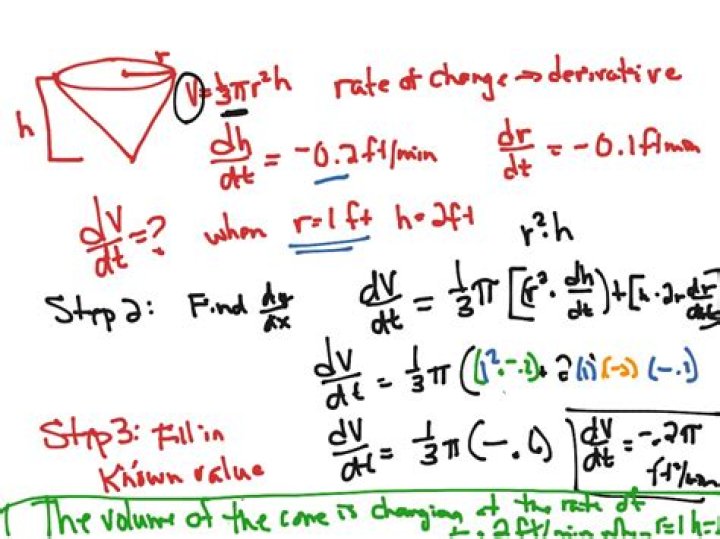 r
h
V = 1/3 πr²h rate of change → derivative
dh/dt = -0.2 ft/min dr/dt = -0.1 ft/min
dV/dt = ? when r=1ft h=2ft
r²·h
Step 2: Find dy/dx dV/dt = 1/3 π [(r² · dh/dt) + [h · 2r dr/dt
dV/dt = 1/3 π (1² · -.2) + 2(1) (-.1)
Step 3: Fill in
Known value
dV/dt = 1/3 π (-.6) dV/dt = -.2π
ft³/min
The volume of the cone is changing at the rate of
.2 ft/min when r=1 h=